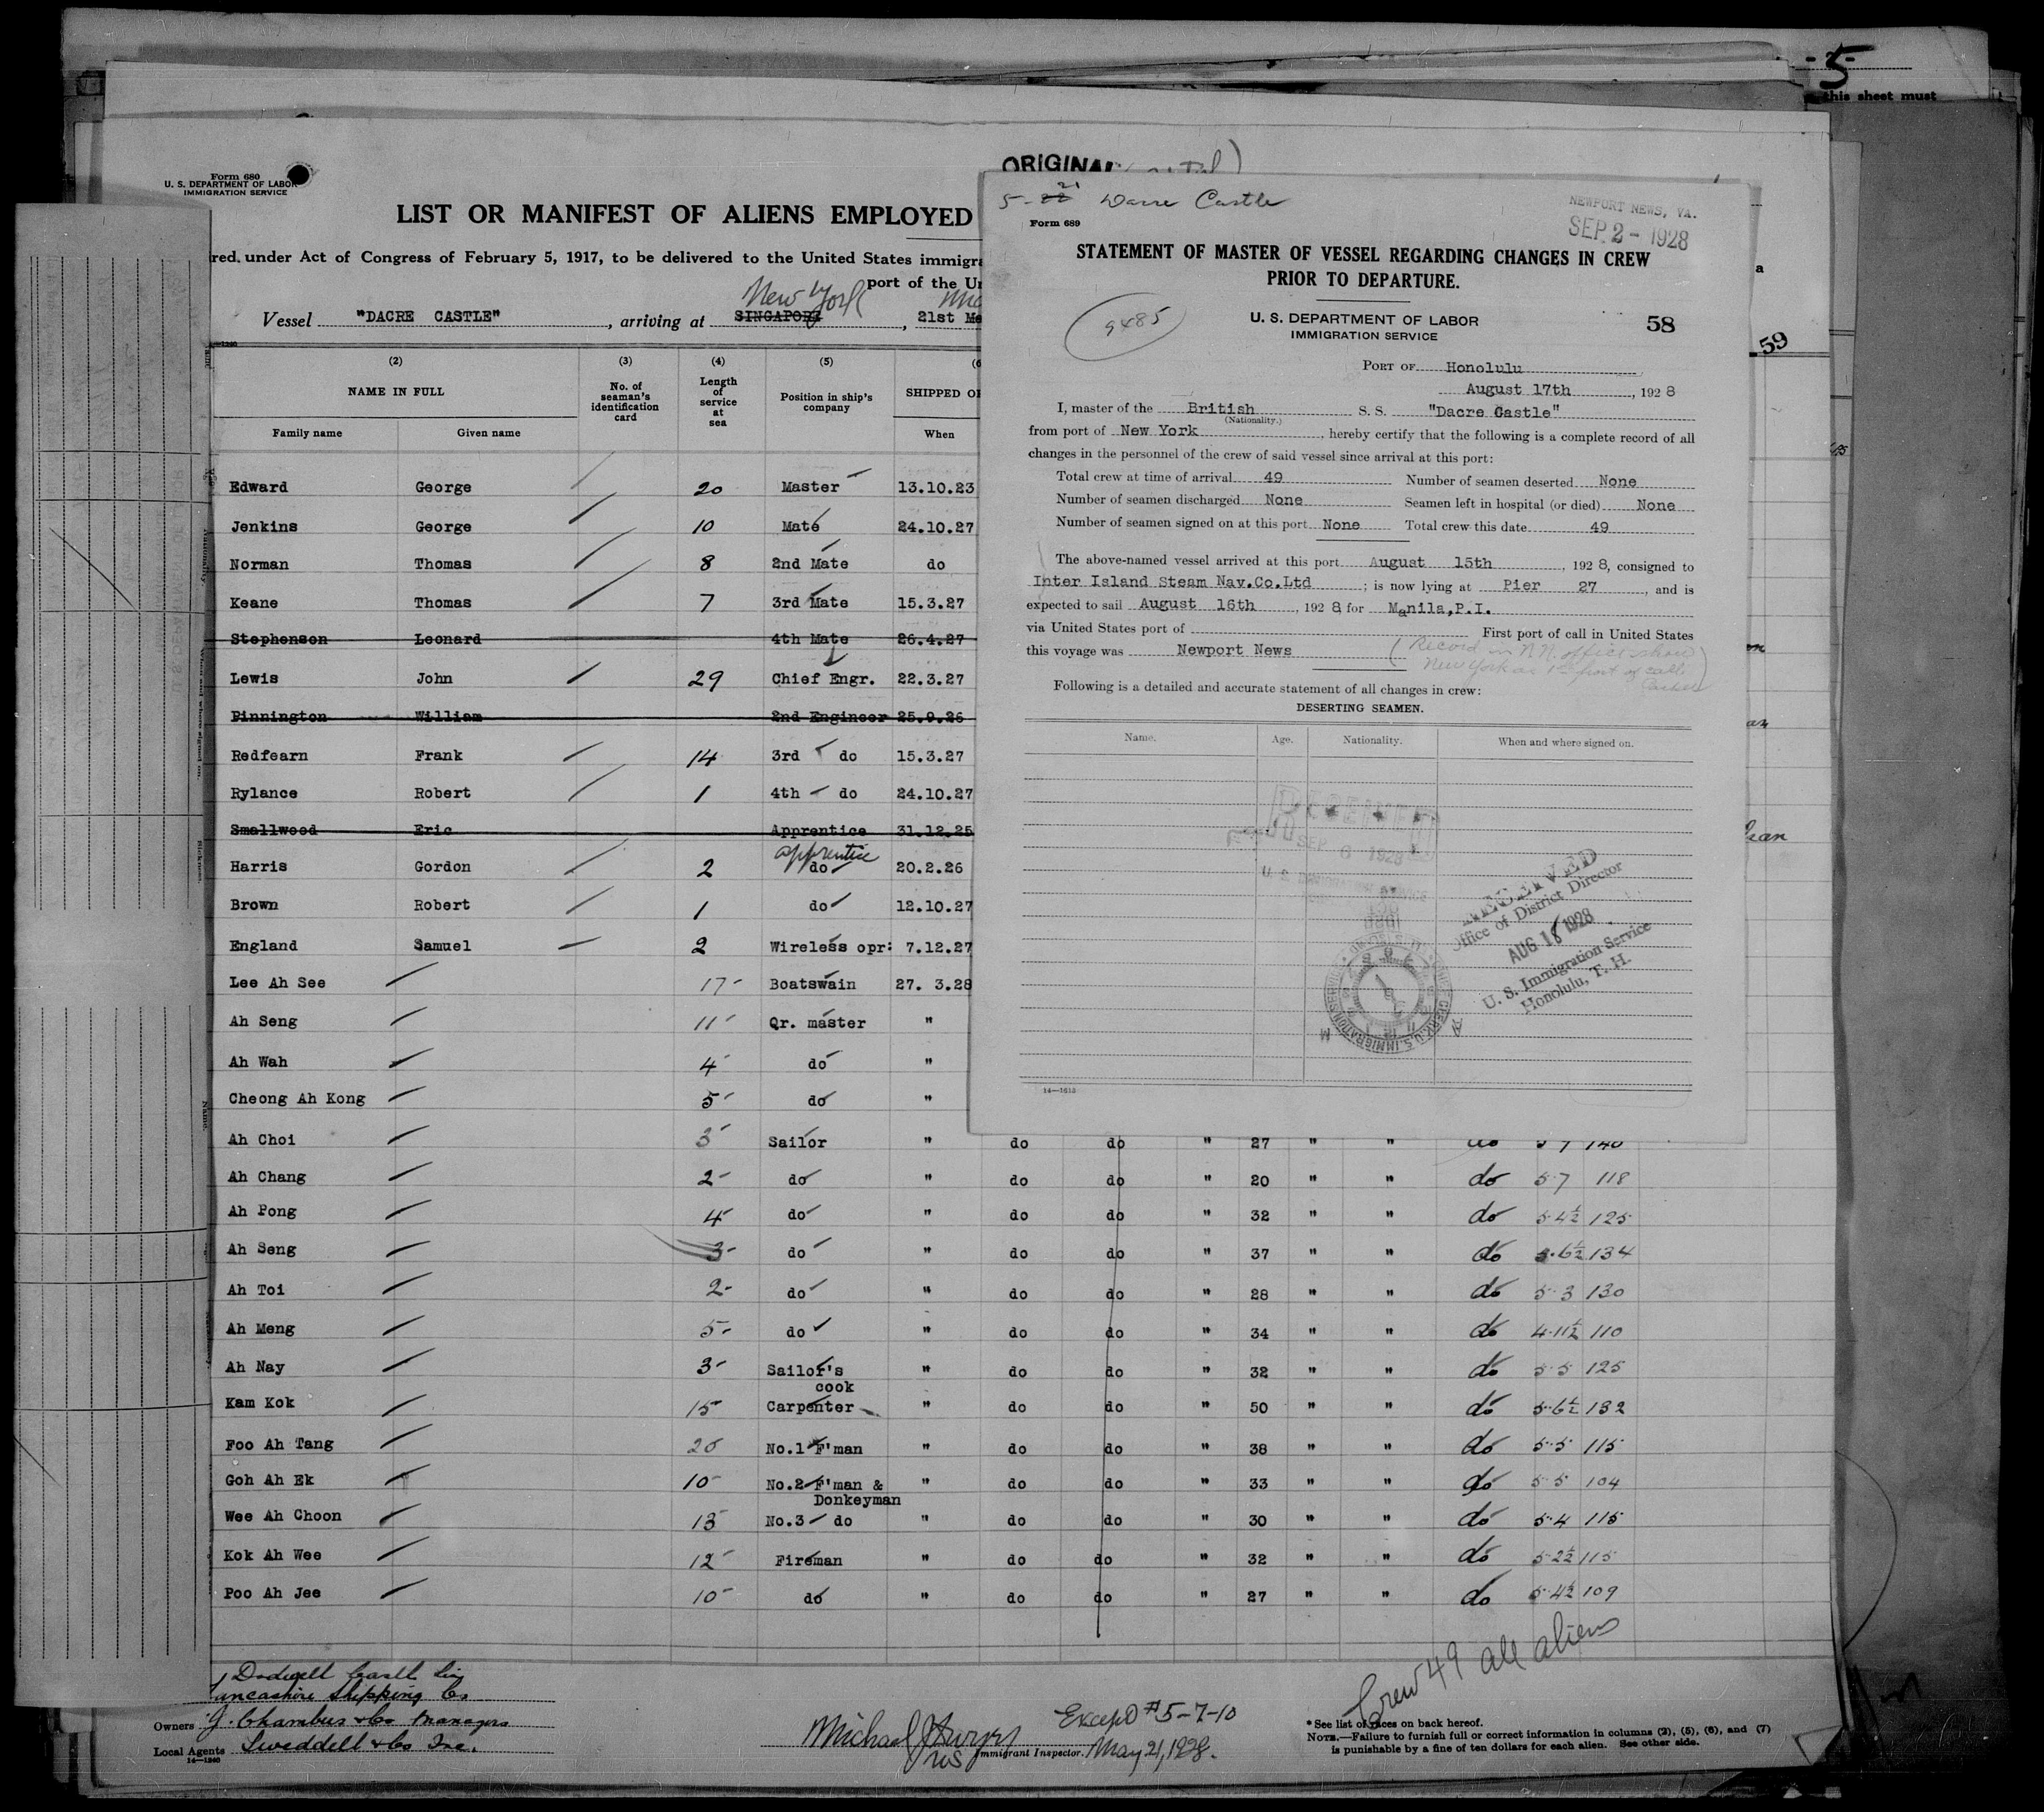 - 5 -
this sheet must
Form 680
U. S. DEPARTMENT OF LABOR
IMMIGRATION SERVICE
ORIGINAL
LIST OR MANIFEST OF ALIENS EMPLOYED
red under Act of Congress of February 5, 1917, to be delivered to the United States immigra
port of the Un
New York
Vessel "DACRE CASTLE" , arriving at SINGAPORE , 21st
(2) (3) (4) (5)
NAME IN FULL No. of seaman's identification card Length of service at sea Position in ship's company SHIPPED O
Family name Given name When
Edward George 20 Master 13.10.23
Jenkins George 10 Mate 24.10.27
Norman Thomas 8 2nd Mate do
Keane Thomas 7 3rd Mate 15.3.27
Stephenson Leonard 4th Mate 26.4.27
Lewis John 29 Chief Engr. 22.3.27
Pinnington William 2nd Engineer 25.9.26
Redfearn Frank 14 3rd do 15.3.27
Rylance Robert 1 4th do 24.10.27
Smallwood Eric Apprentice 31.12.25
apprentice
Harris Gordon 2 do 20.2.26
Brown Robert 1 do 12.10.27
England Samuel 2 Wireless opr: 7.12.27
Lee Ah See 17 Boatswain 27. 3.28
Ah Seng 11 Qr. master "
Ah Wah 4 do "
Cheong Ah Kong 5 do "
Ah Choi 3 Sailor " do do " 27 " " do 5 7 140
Ah Chang 2 do " do do " 20 " " do 5 7 118
Ah Pong 4 do " do do " 32 " " do 5 4½ 125
Ah Seng 3 do " do do " 37 " " do 5.6½ 134
Ah Toi 2 do " do do " 28 " " do 5 3 130
Ah Meng 5 do " do do " 34 " " do 4.11½ 110
Ah Nay 3 Sailor's cook " do do " 32 " " do 5 5 125
Kam Kok 15 Carpenter " do do " 50 " " do 5.6½ 132
Foo Ah Tang 20 No.1 F'man " do do " 38 " " do 5.5 115
Goh Ah Ek 10 No.2 F'man & Donkeyman " do do " 33 " " do 5 5 104
Wee Ah Choon 13 No.3 do " do do " 30 " " do 5.4 115
Kok Ah Wee 12 Fireman " do do " 32 " " do 5 2½ 115
Poo Ah Jee 10 do " do do " 27 " " do 5 4½ 109
Crew 49 all aliens
Dodwell Castle Line
Lancashire Shipping Co
Owners J. Chambers & Co Managers
Local Agents Tweddell & Co Inc.
14—1240
Except #5-7-10
Michael
Immigrant Inspector. May 21, 1928.
* See list of races on back hereof.
NOTE.—Failure to furnish full or correct information in columns (2), (5), (6), and (7)
is punishable by a fine of ten dollars for each alien. See other side.
59
5-22 21 Dacre Castle
NEWPORT NEWS, VA.
SEP 2 - 1928
Form 689
STATEMENT OF MASTER OF VESSEL REGARDING CHANGES IN CREW
PRIOR TO DEPARTURE.
9485
U. S. DEPARTMENT OF LABOR
IMMIGRATION SERVICE
58
PORT OF Honolulu
August 17th , 192 8
I, master of the British S. S. "Dacre Castle"
(Nationality.)
from port of New York , hereby certify that the following is a complete record of all
changes in the personnel of the crew of said vessel since arrival at this port:
Total crew at time of arrival 49 Number of seamen deserted None
Number of seamen discharged None Seamen left in hospital (or died) None
Number of seamen signed on at this port None Total crew this date 49
The above-named vessel arrived at this port August 15th , 192 8, consigned to
Inter Island Steam Nav.Co.Ltd ; is now lying at Pier 27 , and is
expected to sail August 16th , 192 8, for Manila,P.I.
via United States port of First port of call in United States
this voyage was Newport News
(Record in N.N. office show
New York as 1st port of call)
Following is a detailed and accurate statement of all changes in crew:
DESERTING SEAMEN.
Name. Age. Nationality. When and where signed on.
RECEIVED
SEP 6 1928
RECEIVED
Office of District Director
AUG 1 1928
U. S. Immigration Service
Honolulu, T. H.
14—1613